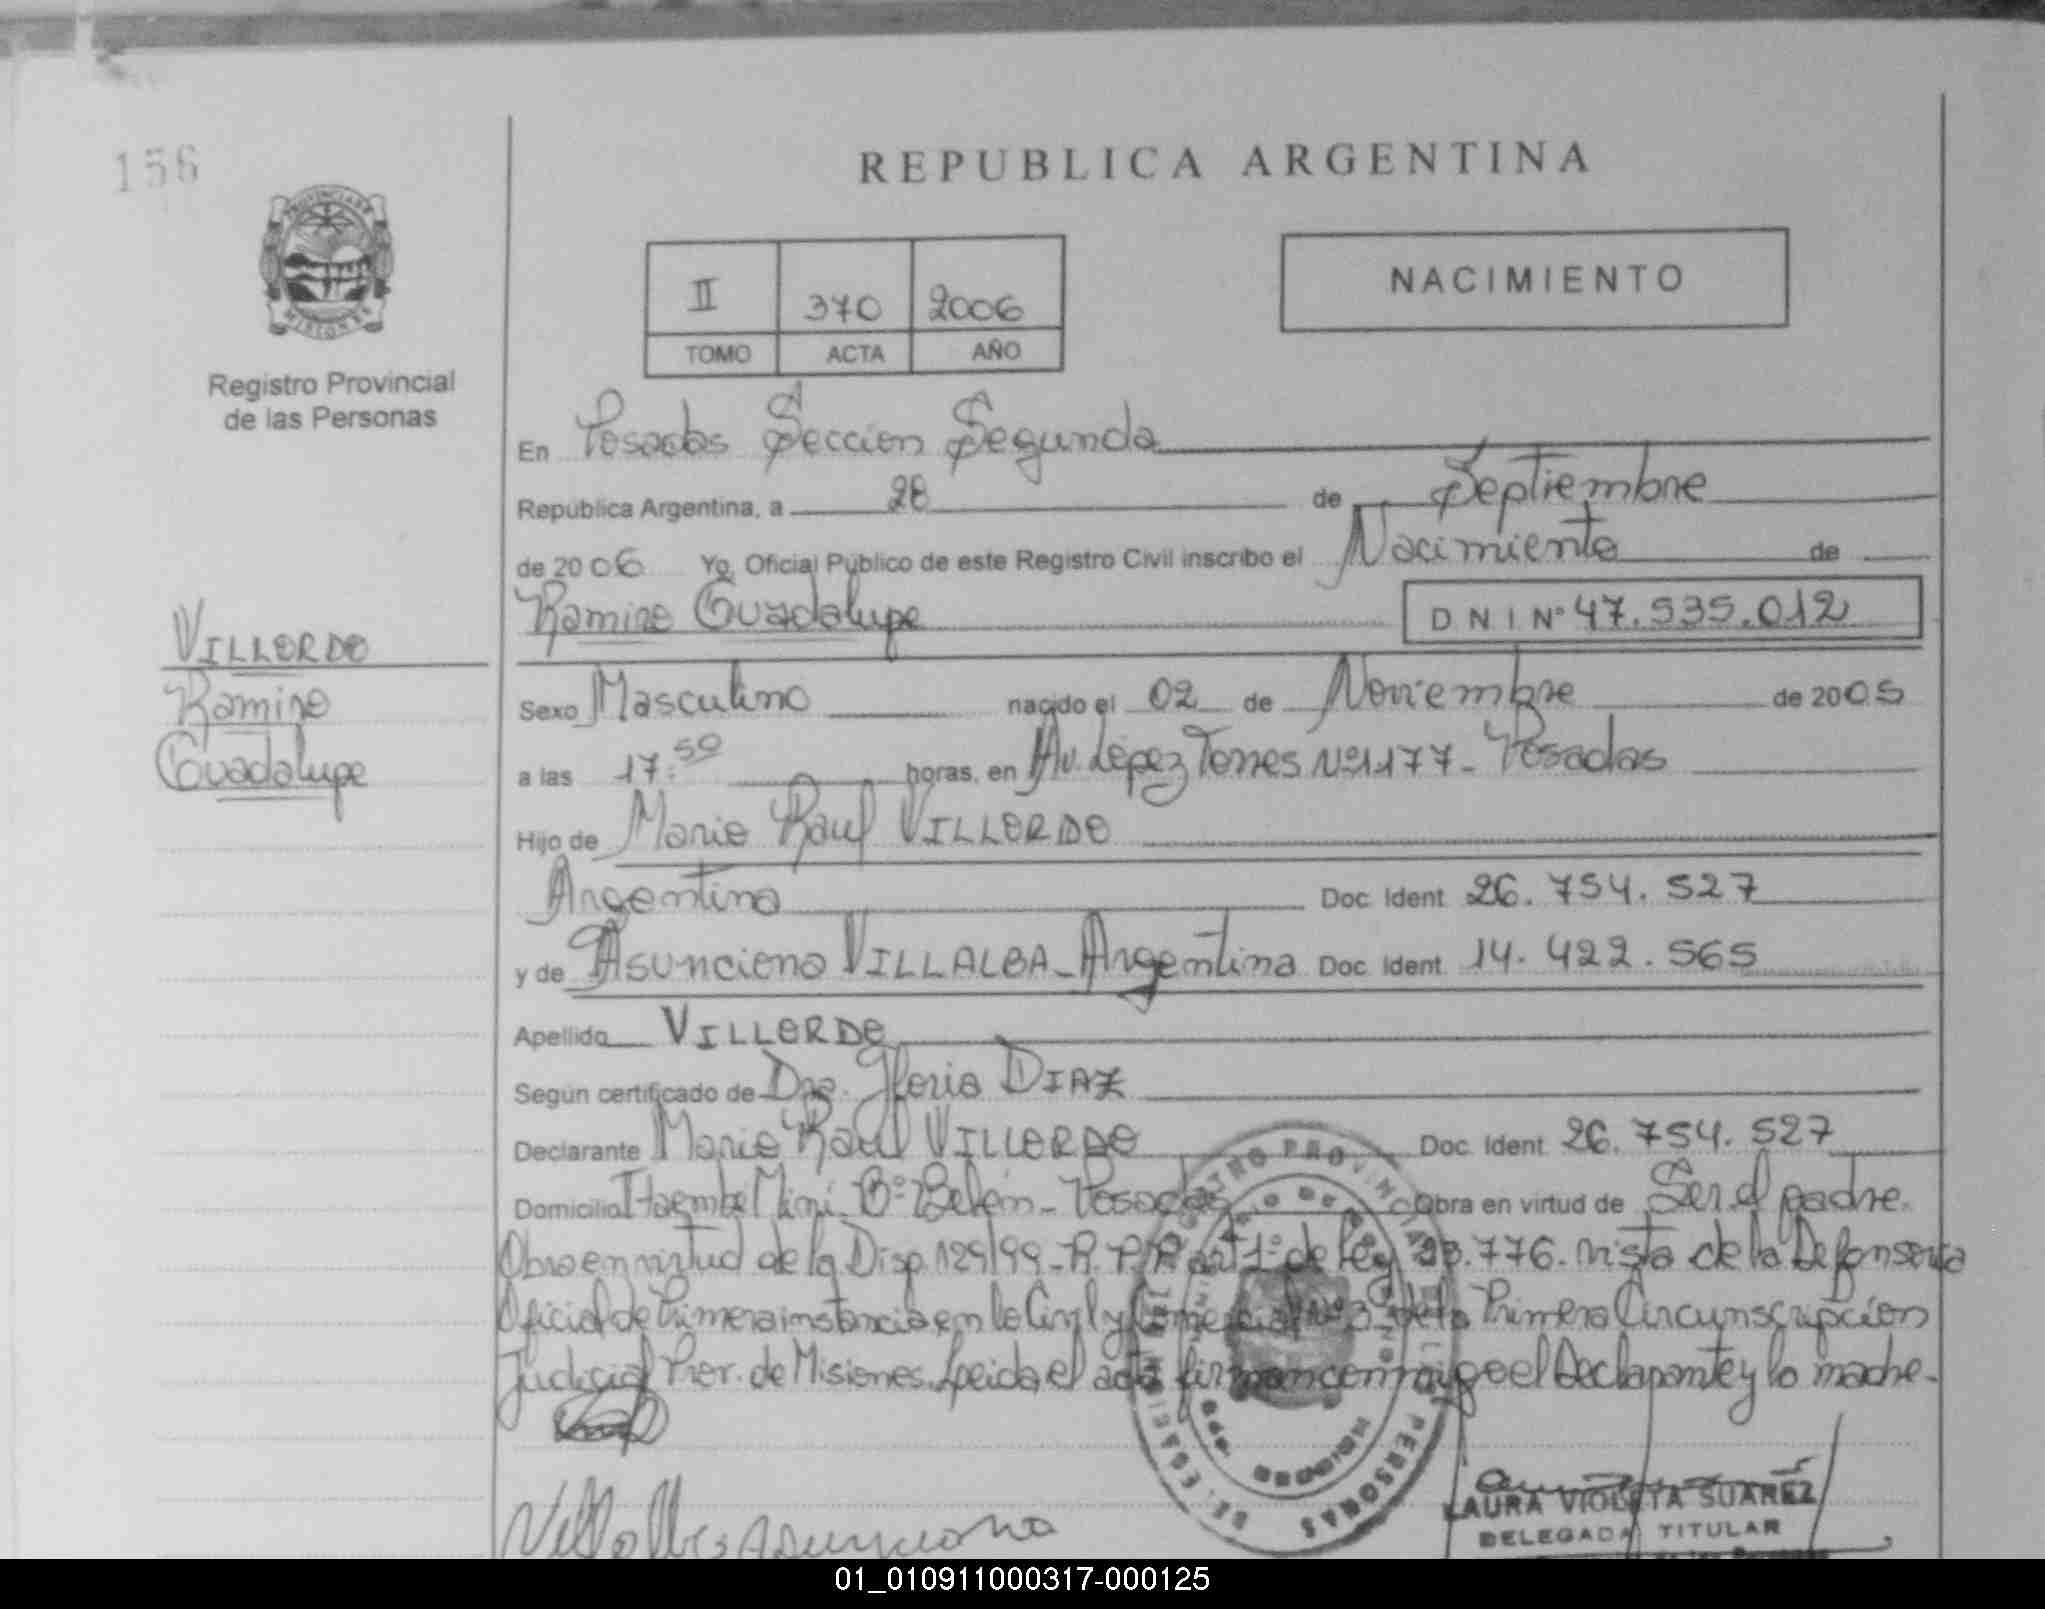 156
REPUBLICA ARGENTINA
PROVINCIA DE
MISIONES
Registro Provincial
de las Personas
II 370 2006
TOMO ACTA AÑO
NACIMIENTO
En Posadas Sección Segunda
República Argentina, a 28 de Septiembre
de 2006 Yo, Oficial Público de este Registro Civil inscribo el Nacimiento de
Ramiro Guadalupe DNI Nº 47.535.012
VILLORDO
Ramiro
Guadalupe
Sexo Masculino nacido el 02 de Noviembre de 2005
a las 17:50 horas, en Av. López Torres Nº1177- Posadas
Hijo de Mario Raul VILLORDO
Argentina Doc. Ident. 26.754.527
y de Asunciona VILLALBA-Argentina Doc. Ident. 14.422.565
Apellido VILLORDO
Según certificado de Dra. Gloria DIAZ
Declarante Mario Raul VILLORDO Doc. Ident. 26.754.527
Domicilio Itaembe Mini Bº Belén- Posadas Obra en virtud de Ser el padre.
Obra en virtud de la Disp. 129/99-R.P.P. art 1º de Ley 23.776. vista de la Defensoria
Oficial de Primera instancia en lo Civil y Comercial Nº3 de la Primera Circunscripción
Judicial Prov. de Misiones. Leida el acta firman conmigo el Declarante y la madre.
REGISTRO PROVINCIAL DE LAS PERSONAS
Villalba Asunciona
LAURA VIOLETA SUAREZ
DELEGADA TITULAR
01_010911000317-000125